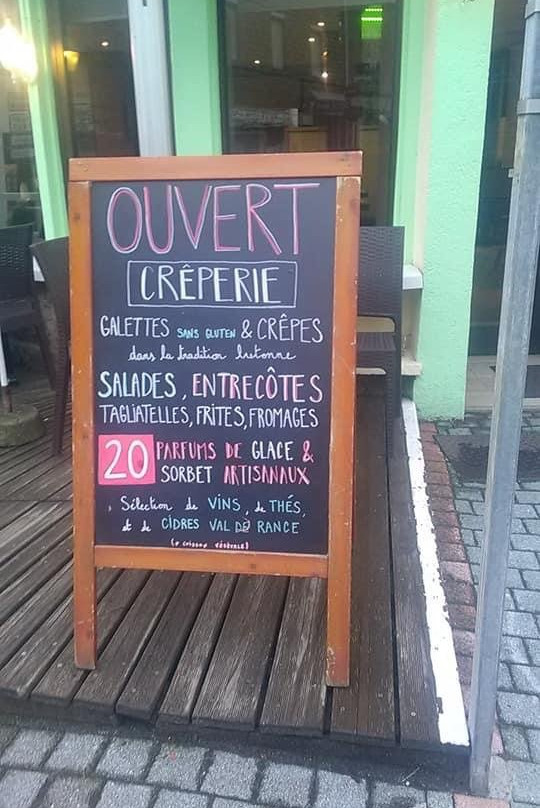 OUVERT
CRÊPERIE
GALETTES SANS GLUTEN & CRÊPES
dans la tradition bretonne
SALADES, ENTRECÔTES
TAGLIATELLES, FRITES, FROMAGES
20 PARFUMS DE GLACE &
SORBET ARTISANAUX
Sélection de VINS, de THÉS,
et de CIDRES VAL DE RANCE